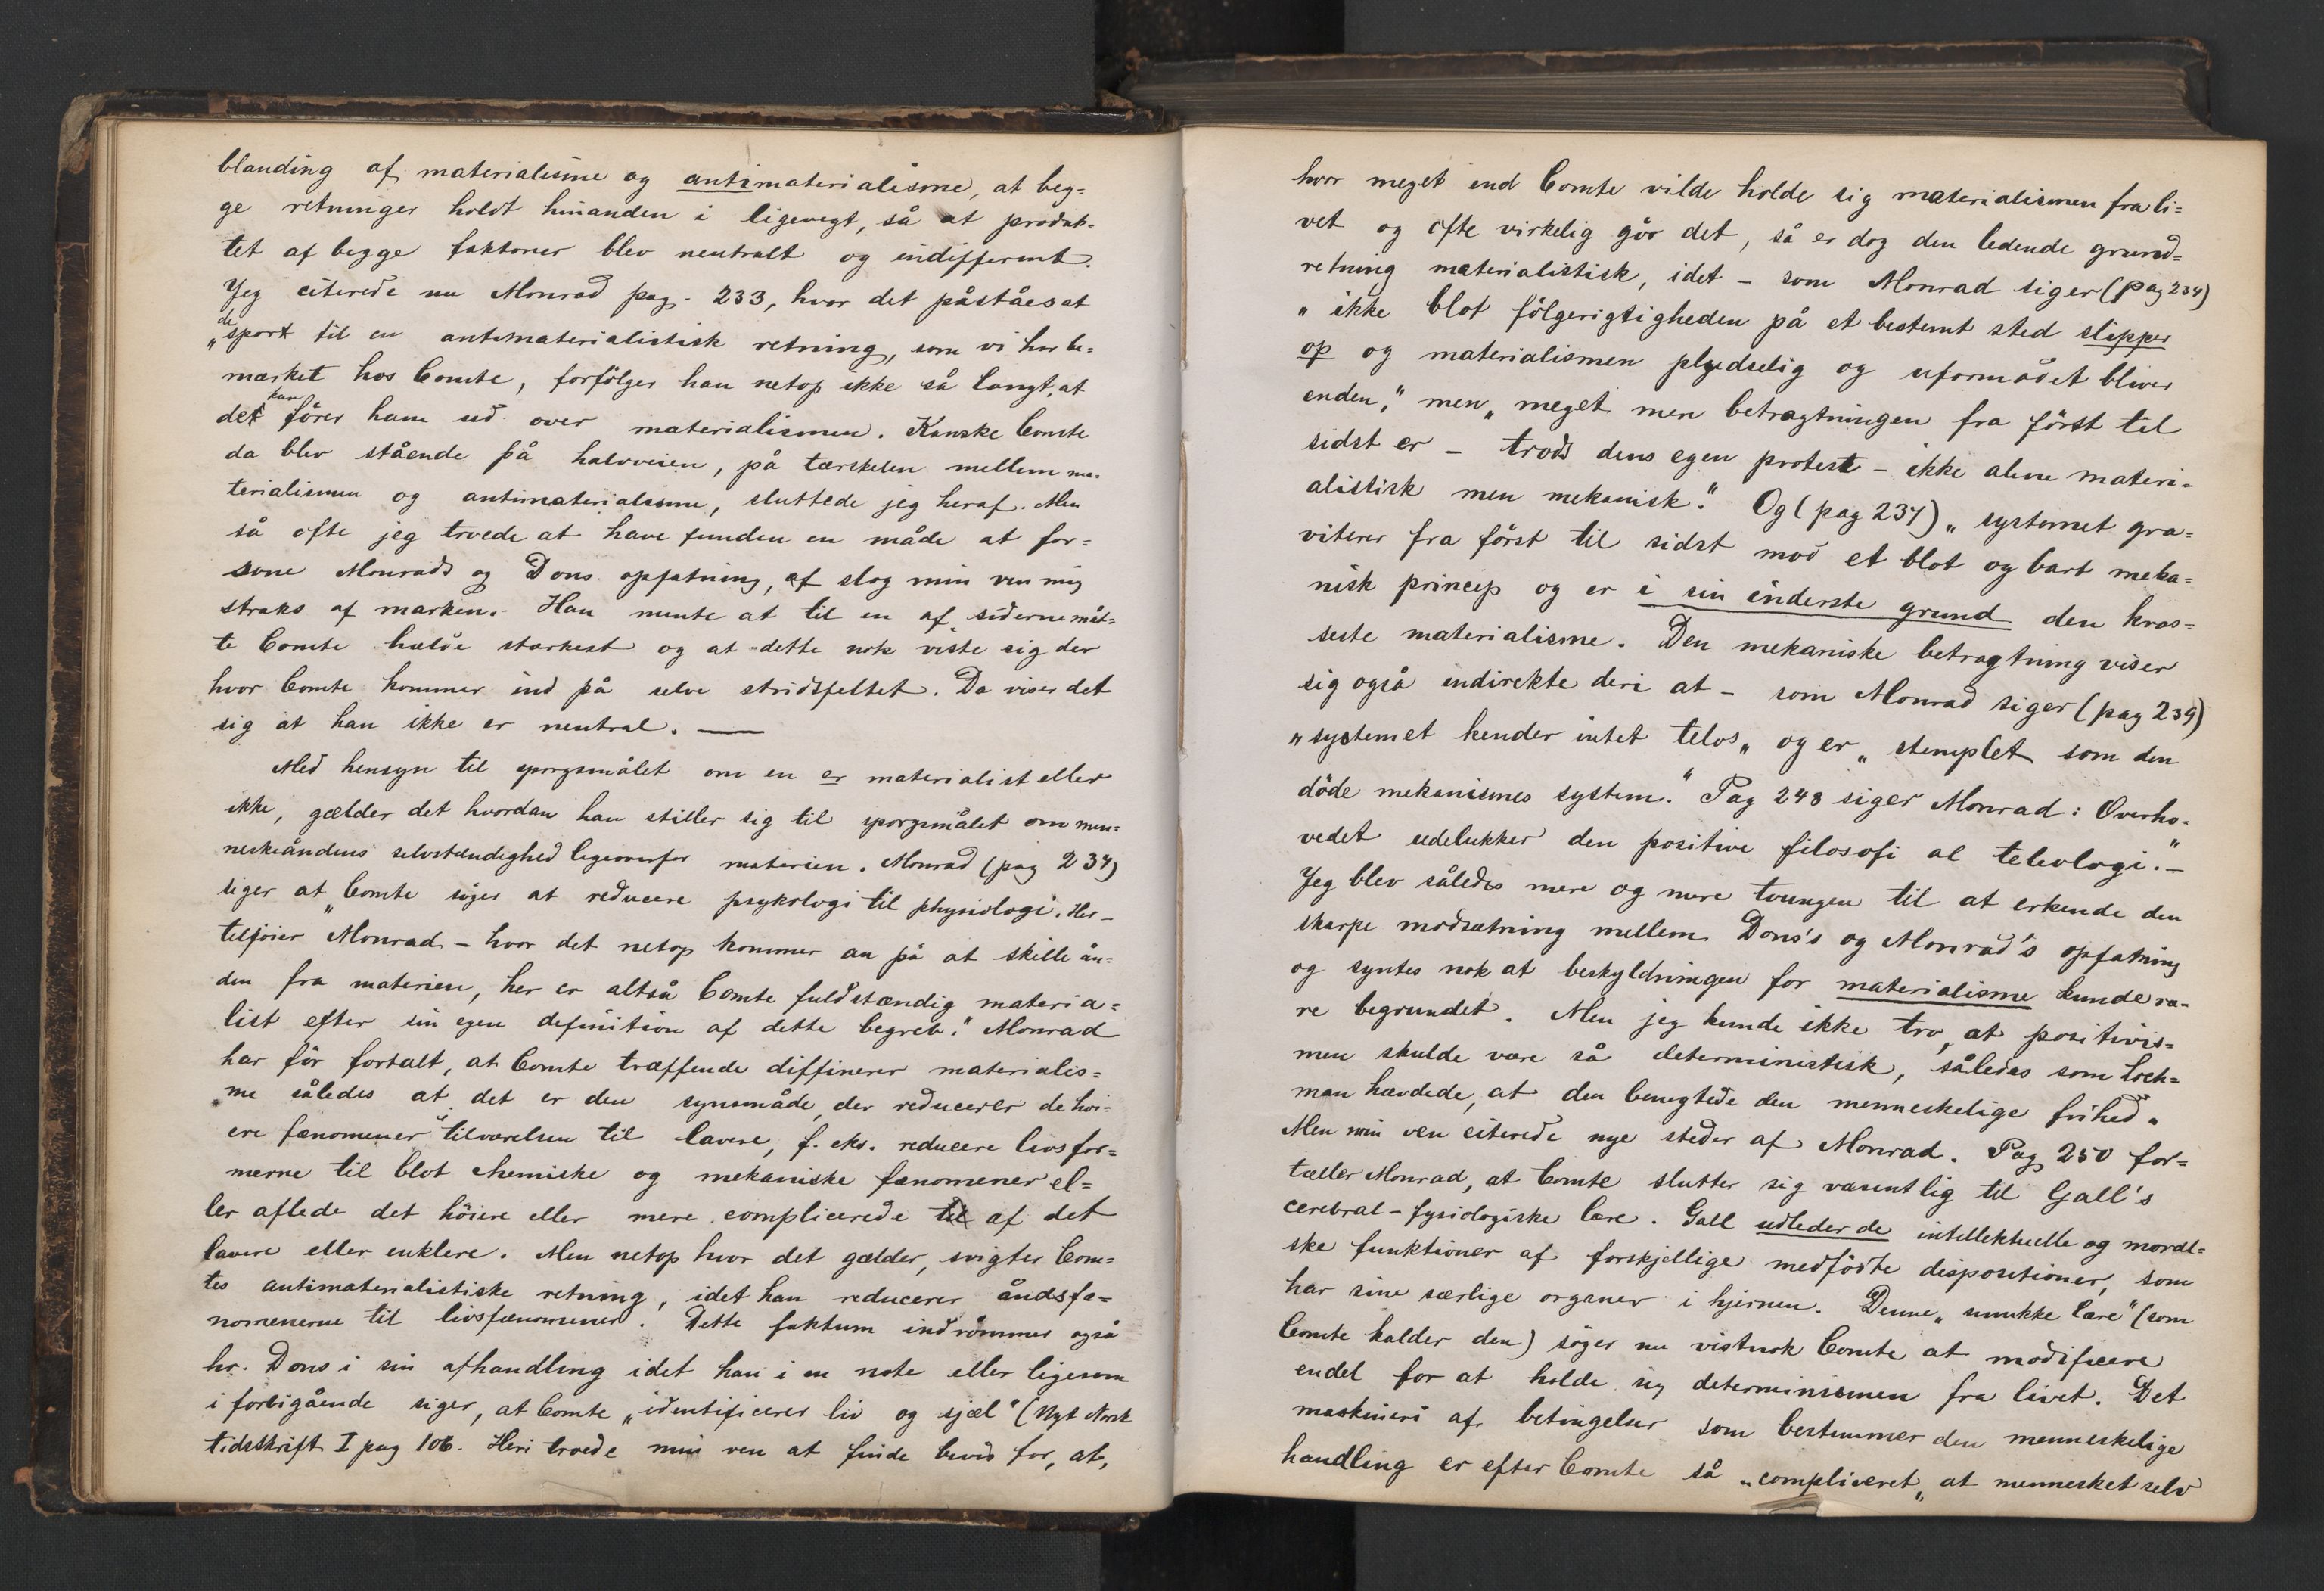 blanding af materialisme og antimaterialisme, at beg=
ge retninger holdt hinanden i ligevegt, så at produk-
tet af begge faktorer blev neutralt og indifferent.
Jeg citerede nu Monrad pag. 233, hvor det påståes at
„de sport til en antimaterialistisk retning, som vi har be=
mærket hos Comte, forfölger han netop ikke så langt, at
det kan förer ham ud over materialismen. Kanske Comte
da blev stående på halvveien, på tærskelen mellem ma-
terialismen og antimaterialisme, sluttede jeg heraf. Men
så ofte jeg troede at have funden en måde at for=
sone Monrads og Dons opfatning, af slog min ven mig
straks af marken. Han mente at til en af siderne måt=
te Comte hælde stærkest og at dette nok viste sig der
hvor Comte kommer ind på selve stridsfeltet. Da viser det
sig at han ikke er neutral. —
Med hensyn til spørgsmålet om en er materialist eller
ikke, gælder det hvordan han stiller sig til spørgsmålet om men=
neskeåndens selvstændighed ligeoverfor materien. Monrad (pag 234)
siger at „Comte søger at reducere psykologi til physiologi. Her –
tilföier Monrad – hvor det netop kommer an på at skille ån=
den fra materien, her er altså Comte fuldstændig materia=
list efter sin egen definition af dette begreb.“ Monrad
har för fortalt, at Comte træffende diffinerer materialis=
me således at det er den synsmåde, der reducerer de höi-
ere fænomener i tilværelsen til lavere, f. eks. reducere livsfor=
merne til blot chemiske og mekaniske fænomener el=
ler aflede det höiere eller mere complicerede til af det
lavere eller enklere. Men netop hvor det gælder, svigter Com=
tes antimaterialistiske retning, idet han reducerer åndsfæ=
nomenerne til livsfænomener. Dette faktum indrömmer også
hr. Dons i sin afhandling idet han i en note eller ligesom
i forbigående siger, at Comte „identificerer liv og sjæl“ (Nyt Norsk
tidsskrift I pag 106. Heri troede min ven at finde bevis for, at,
hvor meget end Comte vilde holde sig materialismen fra li=
vet og ofte virkelig gör det, så er dog den ledende grund=
retning materialistisk, idet – som Monrad siger (pag 234)
„ikke blot fölgerigtigheden på et bestemt sted slipper
op og materialismen plydselig og uformådet bliver
enden,“ men „meget men betragtningen fra först til
sidst er – trods dens egen protest – ikke alene materi-
alistisk men mekanisk.“ Og (pag 237) „systemet gra=
viterer fra först til sidst mod et blot og bart meka=
nisk princip og er i sin inderste grund den kras=
seste materialisme. Den mekaniske betragtning viser
sig også indirekte deri at – som Monrad siger (pag 239)
„systemet kender intet telos„ og er „stemplet som den
döde mekanismes system.“ Pag 248 siger Monrad: Overho-
vedet udelukker den positive filosofi al teleologi.“–
Jeg blev således mere og mere tvungen til at erkende den
skarpe modsætning mellem Dons's og Monrad's opfatning
og syntes nok at beskyldningen for materialisme kunde væ-
re begrundet. Men jeg kunde ikke tro, at positivis=
men skulde være så deterministisk, således som Loch=
man hævdede, at den benegtede den menneskelige frihed.
Men min ven citerede nye steder af Monrad. Pag 250 for=
tæller Monrad, at Comte slutter sig væsentlig til Gall's
cerebral-fysiologiske lære. Gall udleder de intellektuelle og moral=
ske funktioner af forskjellige medfödte dispositioner, som
har sine særlige organer i hjernen. Denne „smukke lære“ (som
Comte kalder den) söger nu vistnok Comte at modificere
endel for at holde sig determinismen fra livet. Det
maskineri af betingelser som bestemmer den menneskelige
handling er efter Comte så „compliceret„ at mennesket selv